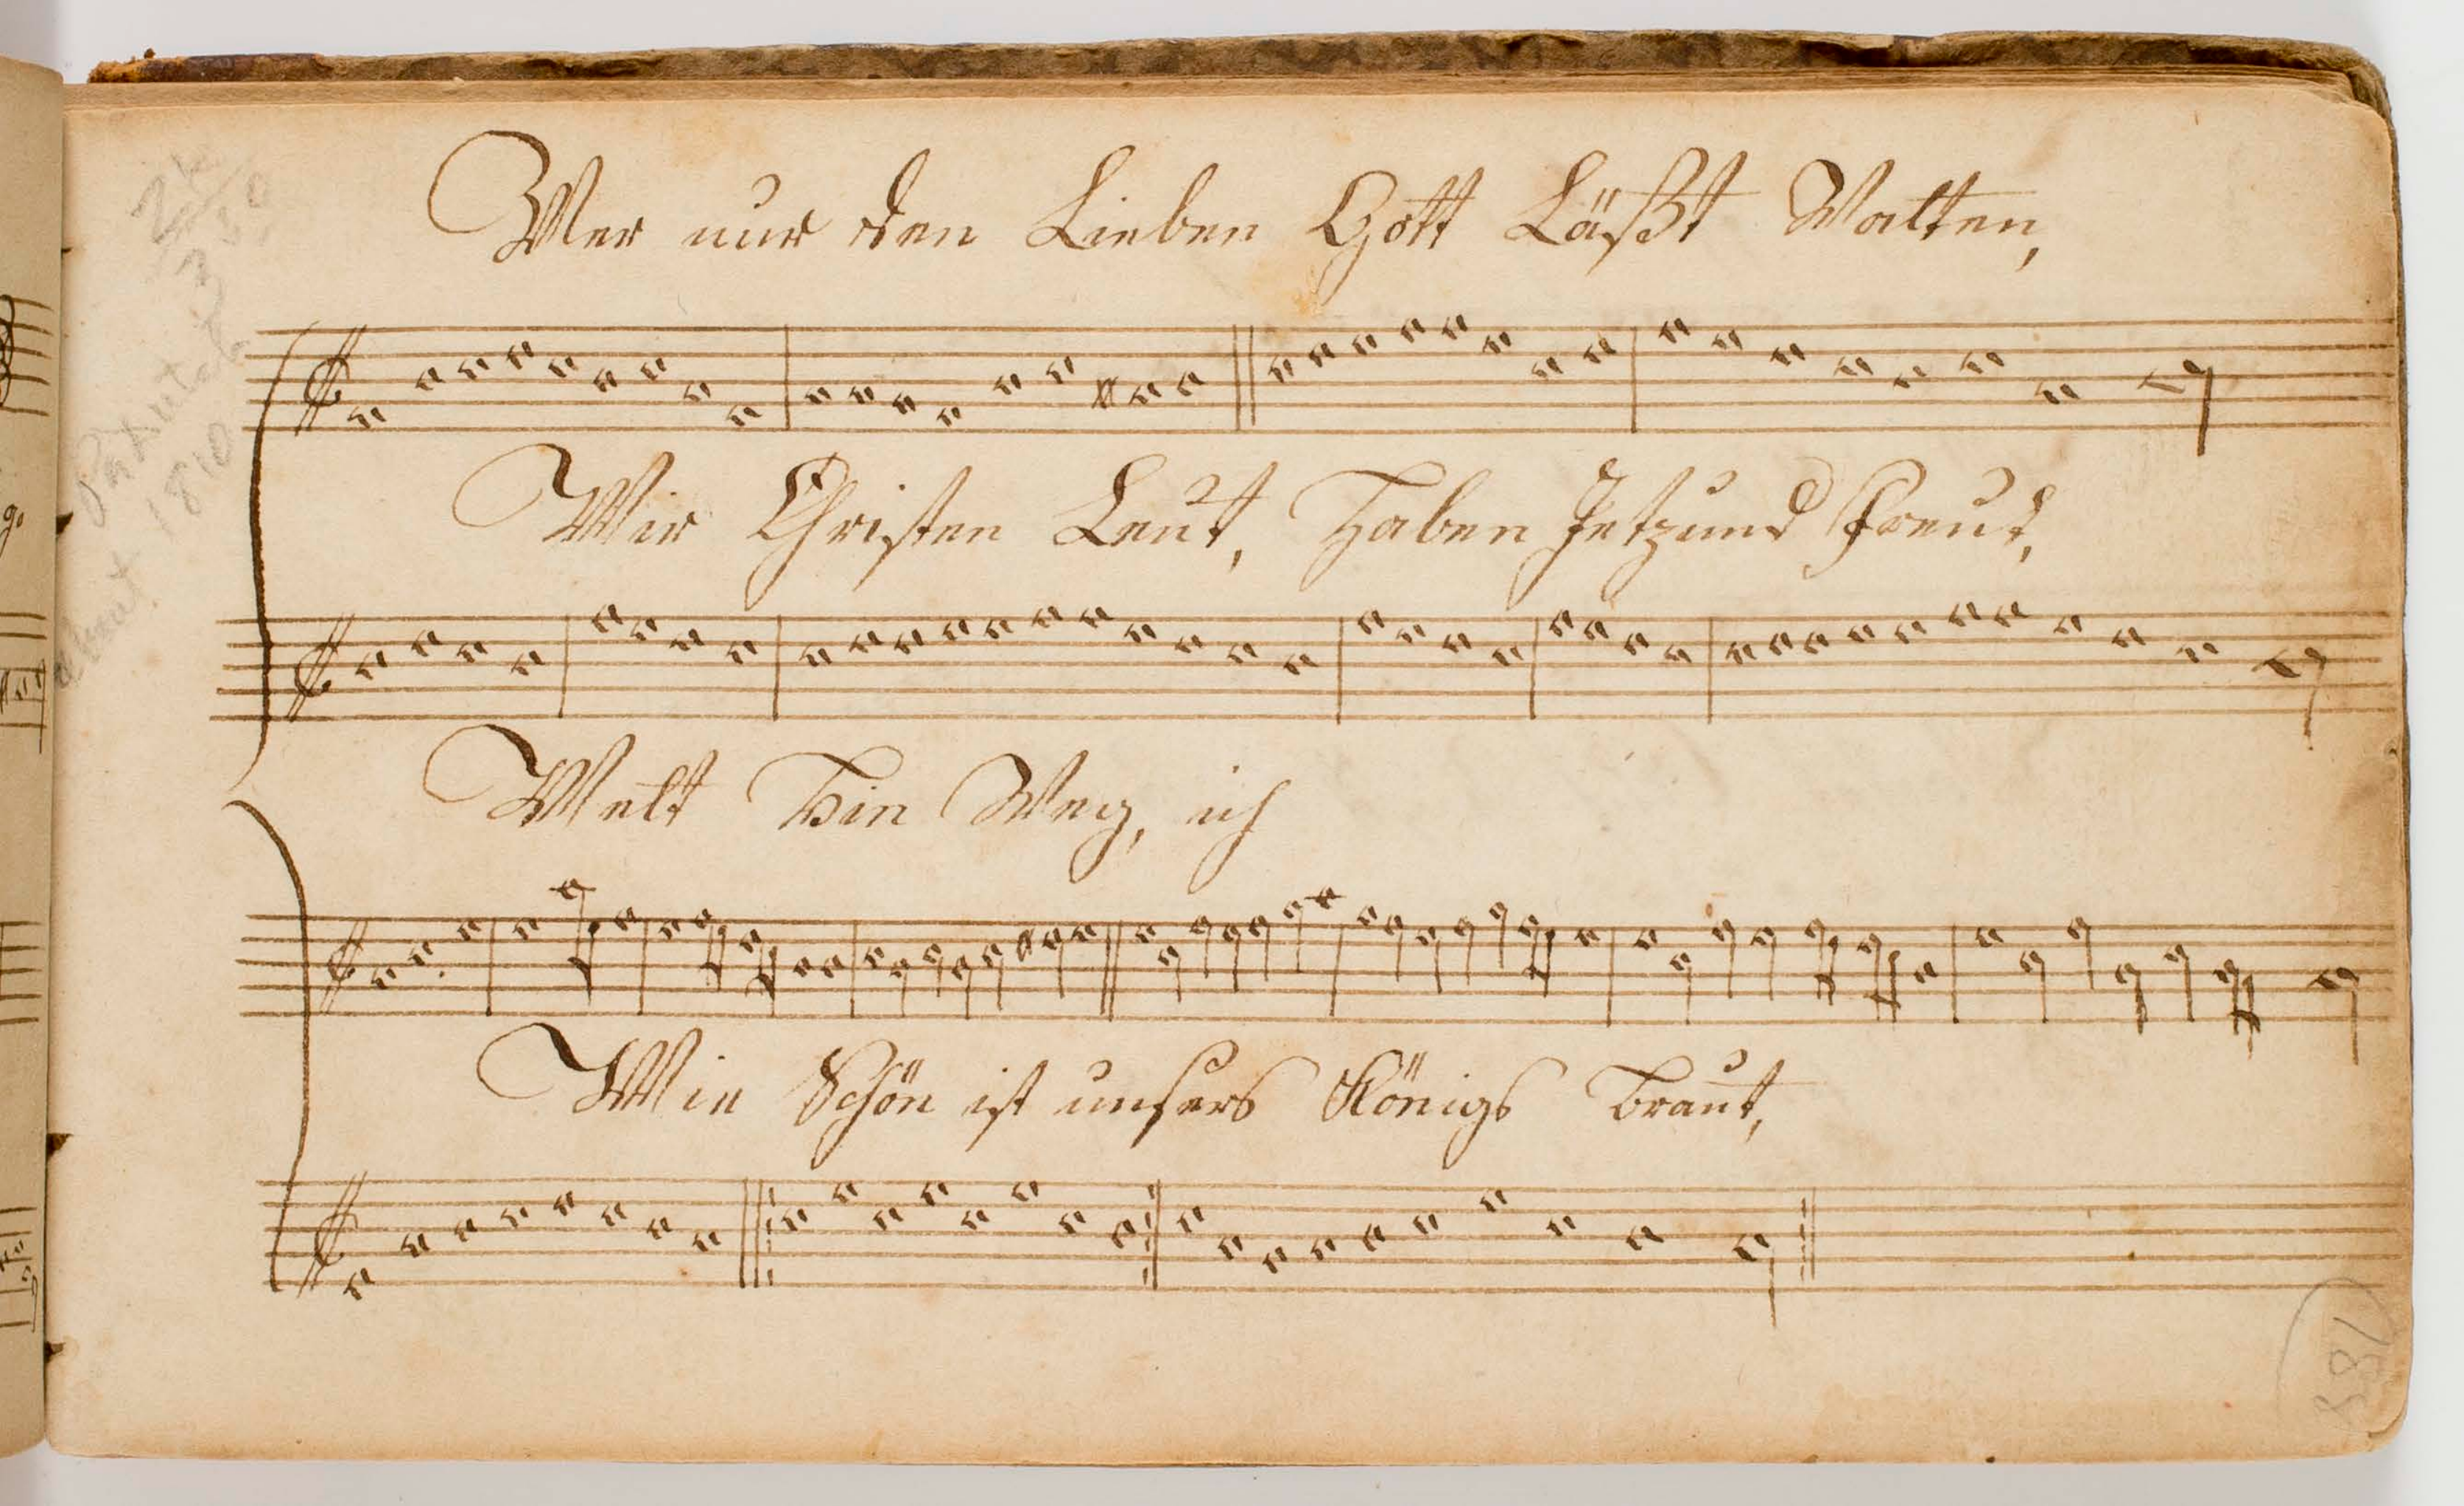 Wer nur den Lieben Gott Läßt Walten,
Wir Christen Leut, Haben Jetzund Freud,
Welt Hin Weg, ich
Wie Schön ist unsers Königs Braut,
about 1810
188